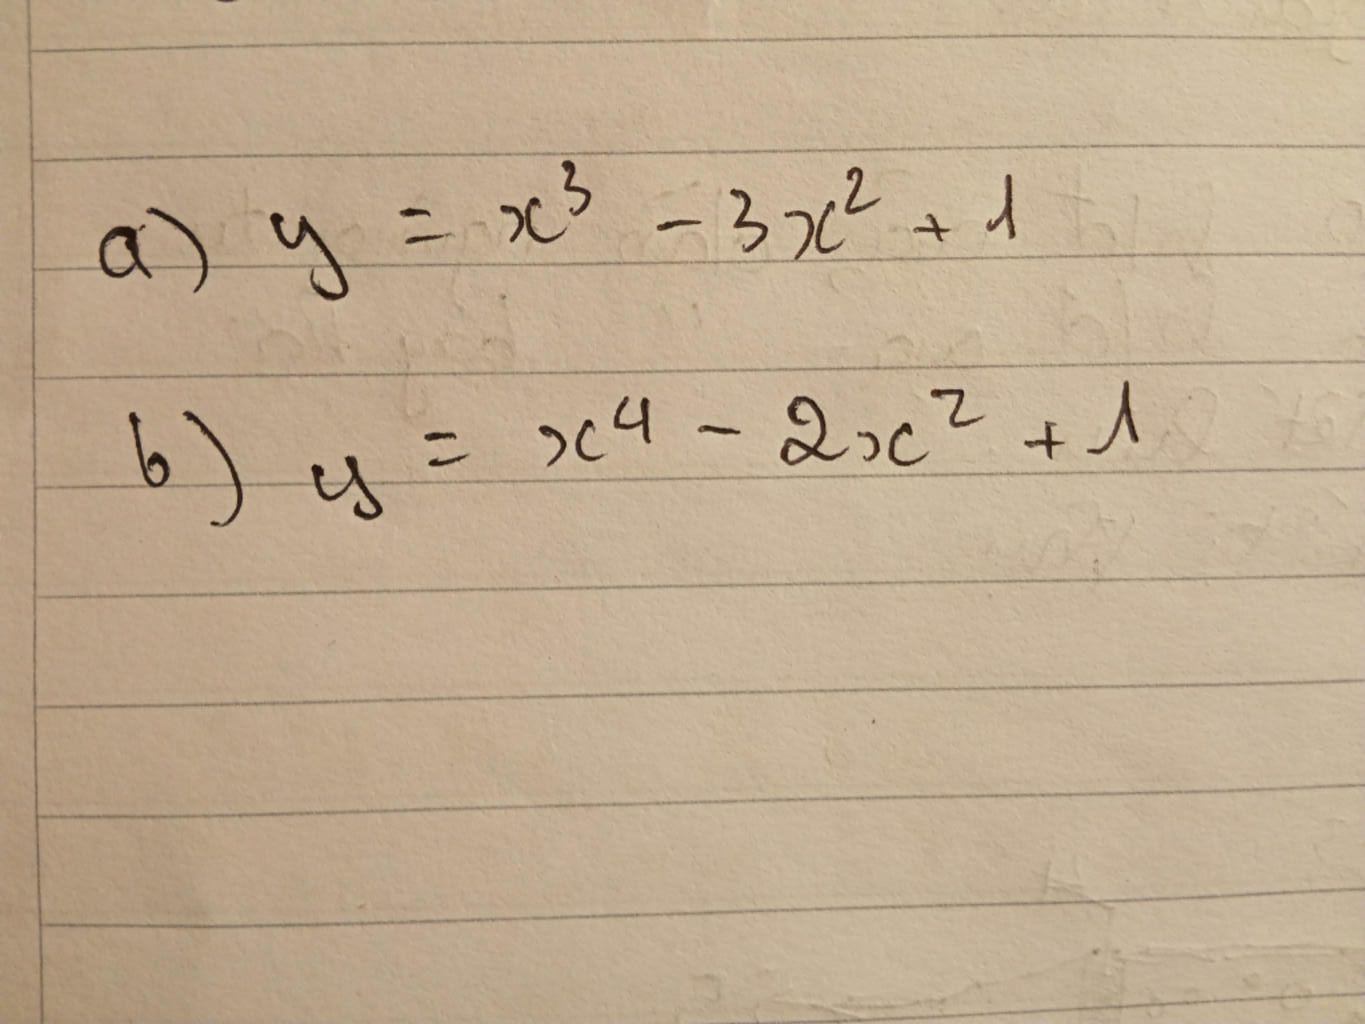 a) y = x³ - 3x² + 1
b) y = x⁴ - 2x² + 1